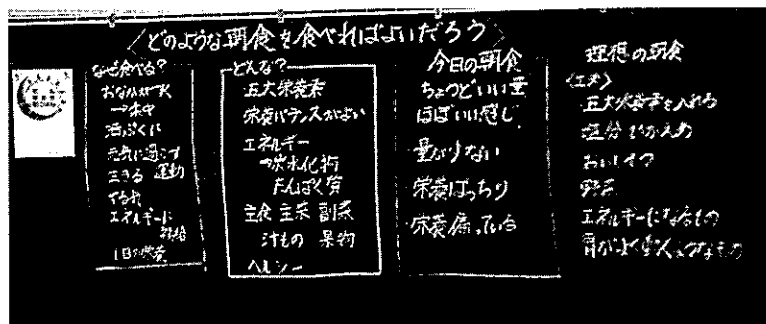 どのような朝食を食べればよいだろう
なぜ食べる?
おなかがすく
→集中
活ぱつに
元気に過ごす
生きる 運動
エネルギーに
補給
1日の栄養
どんな?
五大栄養素
栄養バランスがよい
エネルギー
→炭水化物
たんぱく質
主食 主菜 副菜
汁もの 果物
ヘルシー
今日の朝食
ちょうどいい量
ほぼいい感じ
量が少ない
栄養ばっちり
栄養偏っている
理想の朝食
〈工夫〉
五大栄養素を入れる
塩分ひかえめ
野菜
エネルギーになるもの